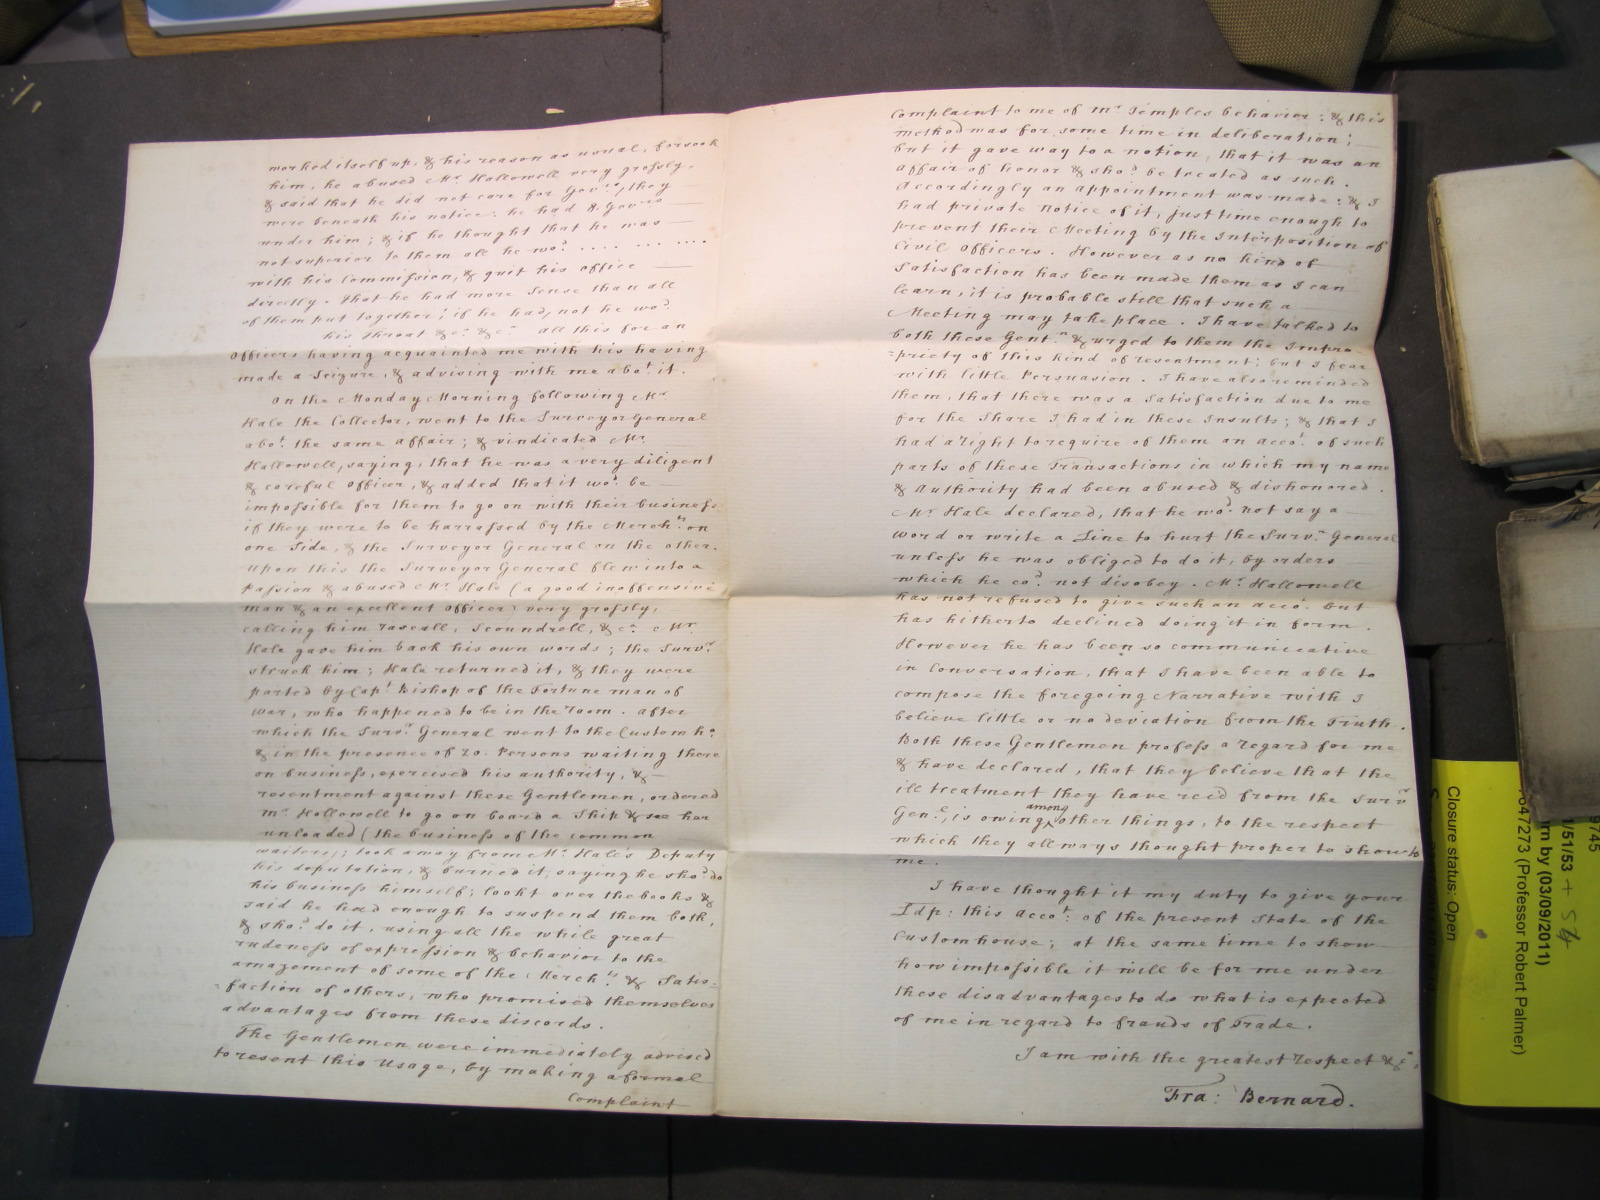 worked itself up, & his reason as usual, forsook
him, he abused Mr. Hallowell very grossly,
& said that he did not care for Govrs., they
were beneath his notice: he had 8. Govrs
under him; & if he thought that he was
not superior to them all he wod. .... ... ....
with his Commission, & quit his office
directly. That he had more Sense than all
of them put together; if he had, not he wod.
his Throat &c. &c. All this for an
Officers having acquainted me with his having
made a Seizure, & advising with me abot. it.
On the Monday Morning following Mr
Hale the Collector, went to the Surveyor General
abot. the same affair; & vindicated Mr.
Hallowell, saying, that he was a very diligent
& careful Officer, & added that it wod. be
impossible for them to go on with their business
if they were to be harrassed by the Mercht.s on
one Side, & the Surveyor General on the other.
upon this the Surveyor General flew into a
Passion & abused Mr. Hale (a good inoffensive
man & an excellent Officer) very grossly,
calling him rascall, Scoundrell, &ca. Mr.
Hale gave him back his own words; the Survr.
struck him; Hale returned it, & they were
parted by Capt. Bishop of the Fortune man of
war, who happened to be in the room. After
which the Survr. General went to the Custom ho.
& in the presence of 20. Persons waiting there
on business, exercised his authority, &
resentment against these Gentlemen, ordered
Mr. Hallowell to go on board a Ship & see her
unloaded (the business of the common
waiters); took away from Mr. Hale's Deputy
his deputation, & burned it, saying he shod. do
his business himself; lookt over the books &
said he had enough to suspend them both,
& shod. do it, using all the while great
rudeness of expression & behavior to the
amazement of some of the Mercht.s & Satis=
=faction of others, who promised themselves
advantages from these discords.
The Gentlemen were immediately advised
to resent this Usage, by making a formal
Complaint
Complaint to me of Mr. Temples behavior: & this
method was for some time in deliberation;
but it gave way to a notion, that it was an
affair of honor & shod. be treated as such.
Accordingly an appointment was made: & I
had private notice of it, just time enough to
prevent their Meeting by the Interposition of
Civil Officers. However as no kind of
Satisfaction has been made them as I can
learn, it is probable still that such a
Meeting may take place. I have talked to
both these Gentn. & urged to them the Impro-
=priety of this kind of resentment; but I fear
with little Persuasion. I have also reminded
them, that there was a Satisfaction due to me
for the Share I had in these Insults; & that I
had a right to require of them an accot. of such
parts of these Transactions in which my name
& Authority had been abused & dishonored.
Mr. Hale declared, that he wod. not say a
word or write a Line to hurt the Survr. General
unless he was obliged to do it, by orders
which he cod. not disobey. Mr. Hallowell
has not refused to give such an accot. but
has hitherto declined doing it in form.
However he has been so communicative
in Conversation, that I have been able to
compose the foregoing Narrative with I
believe little or no deviation from the Truth.
Both these Gentlemen profess a regard for me
& have declared, that they believe that the
ill treatment they have recd from the Survr
Genl., is owing among other things, to the respect
which they allways thought proper to show to
me.
I have thought it my duty to give your
Ldp: this accot. of the present State of the
Customhouse; at the same time to show
how impossible it will be for me under
these disadvantages to do what is expected
of me in regard to frauds of Trade.
I am with the greatest respect &c.
Fra: Bernard.
9745
1/51/53 + 54
rn by (03/09/2011)
647273 (Professor Robert Palmer)
Closure status: Open